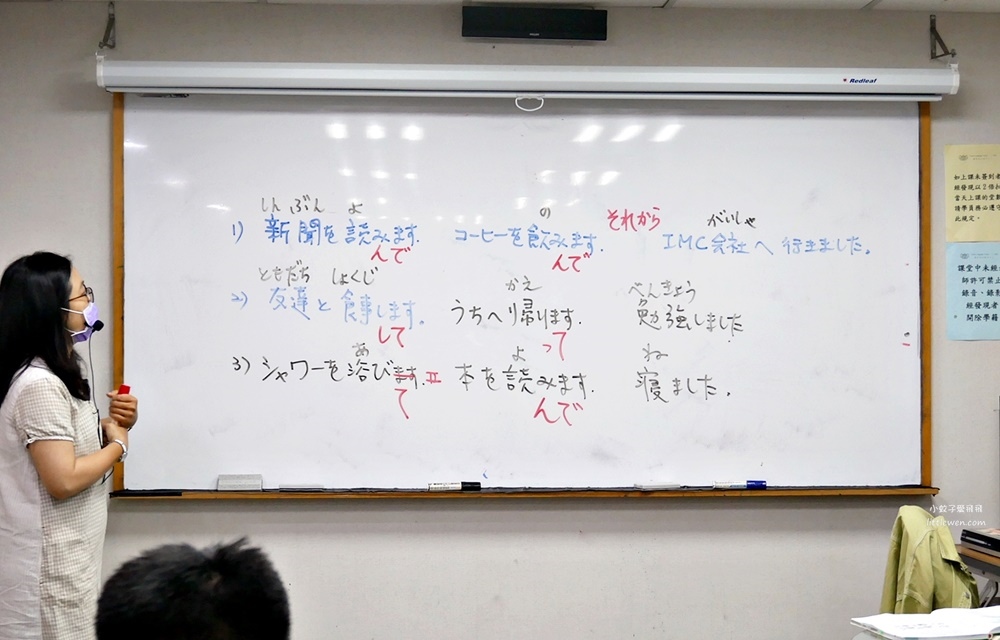 Redleaf
しんぶん よ の それから がいしゃ
1) 新聞を読みます. コーヒーを飲みます. IMC会社へ行きました。
んで んで
ともだち しょくじ かえ べんきょう
2) 友達と食事します。 うちへ帰ります. 勉強しました
して って
あ よ ね
3) シャワーを浴びます.II 本を読みます. 寝ました.
て んで
如上課未簽到者
經發現以2倍扣
當天上課的堂數
請學員務必遵守
此規定。
課堂中未經
師許可禁止
錄音、錄影
經發現者
開除學籍
小蚊子樂飛飛
littlewen.com